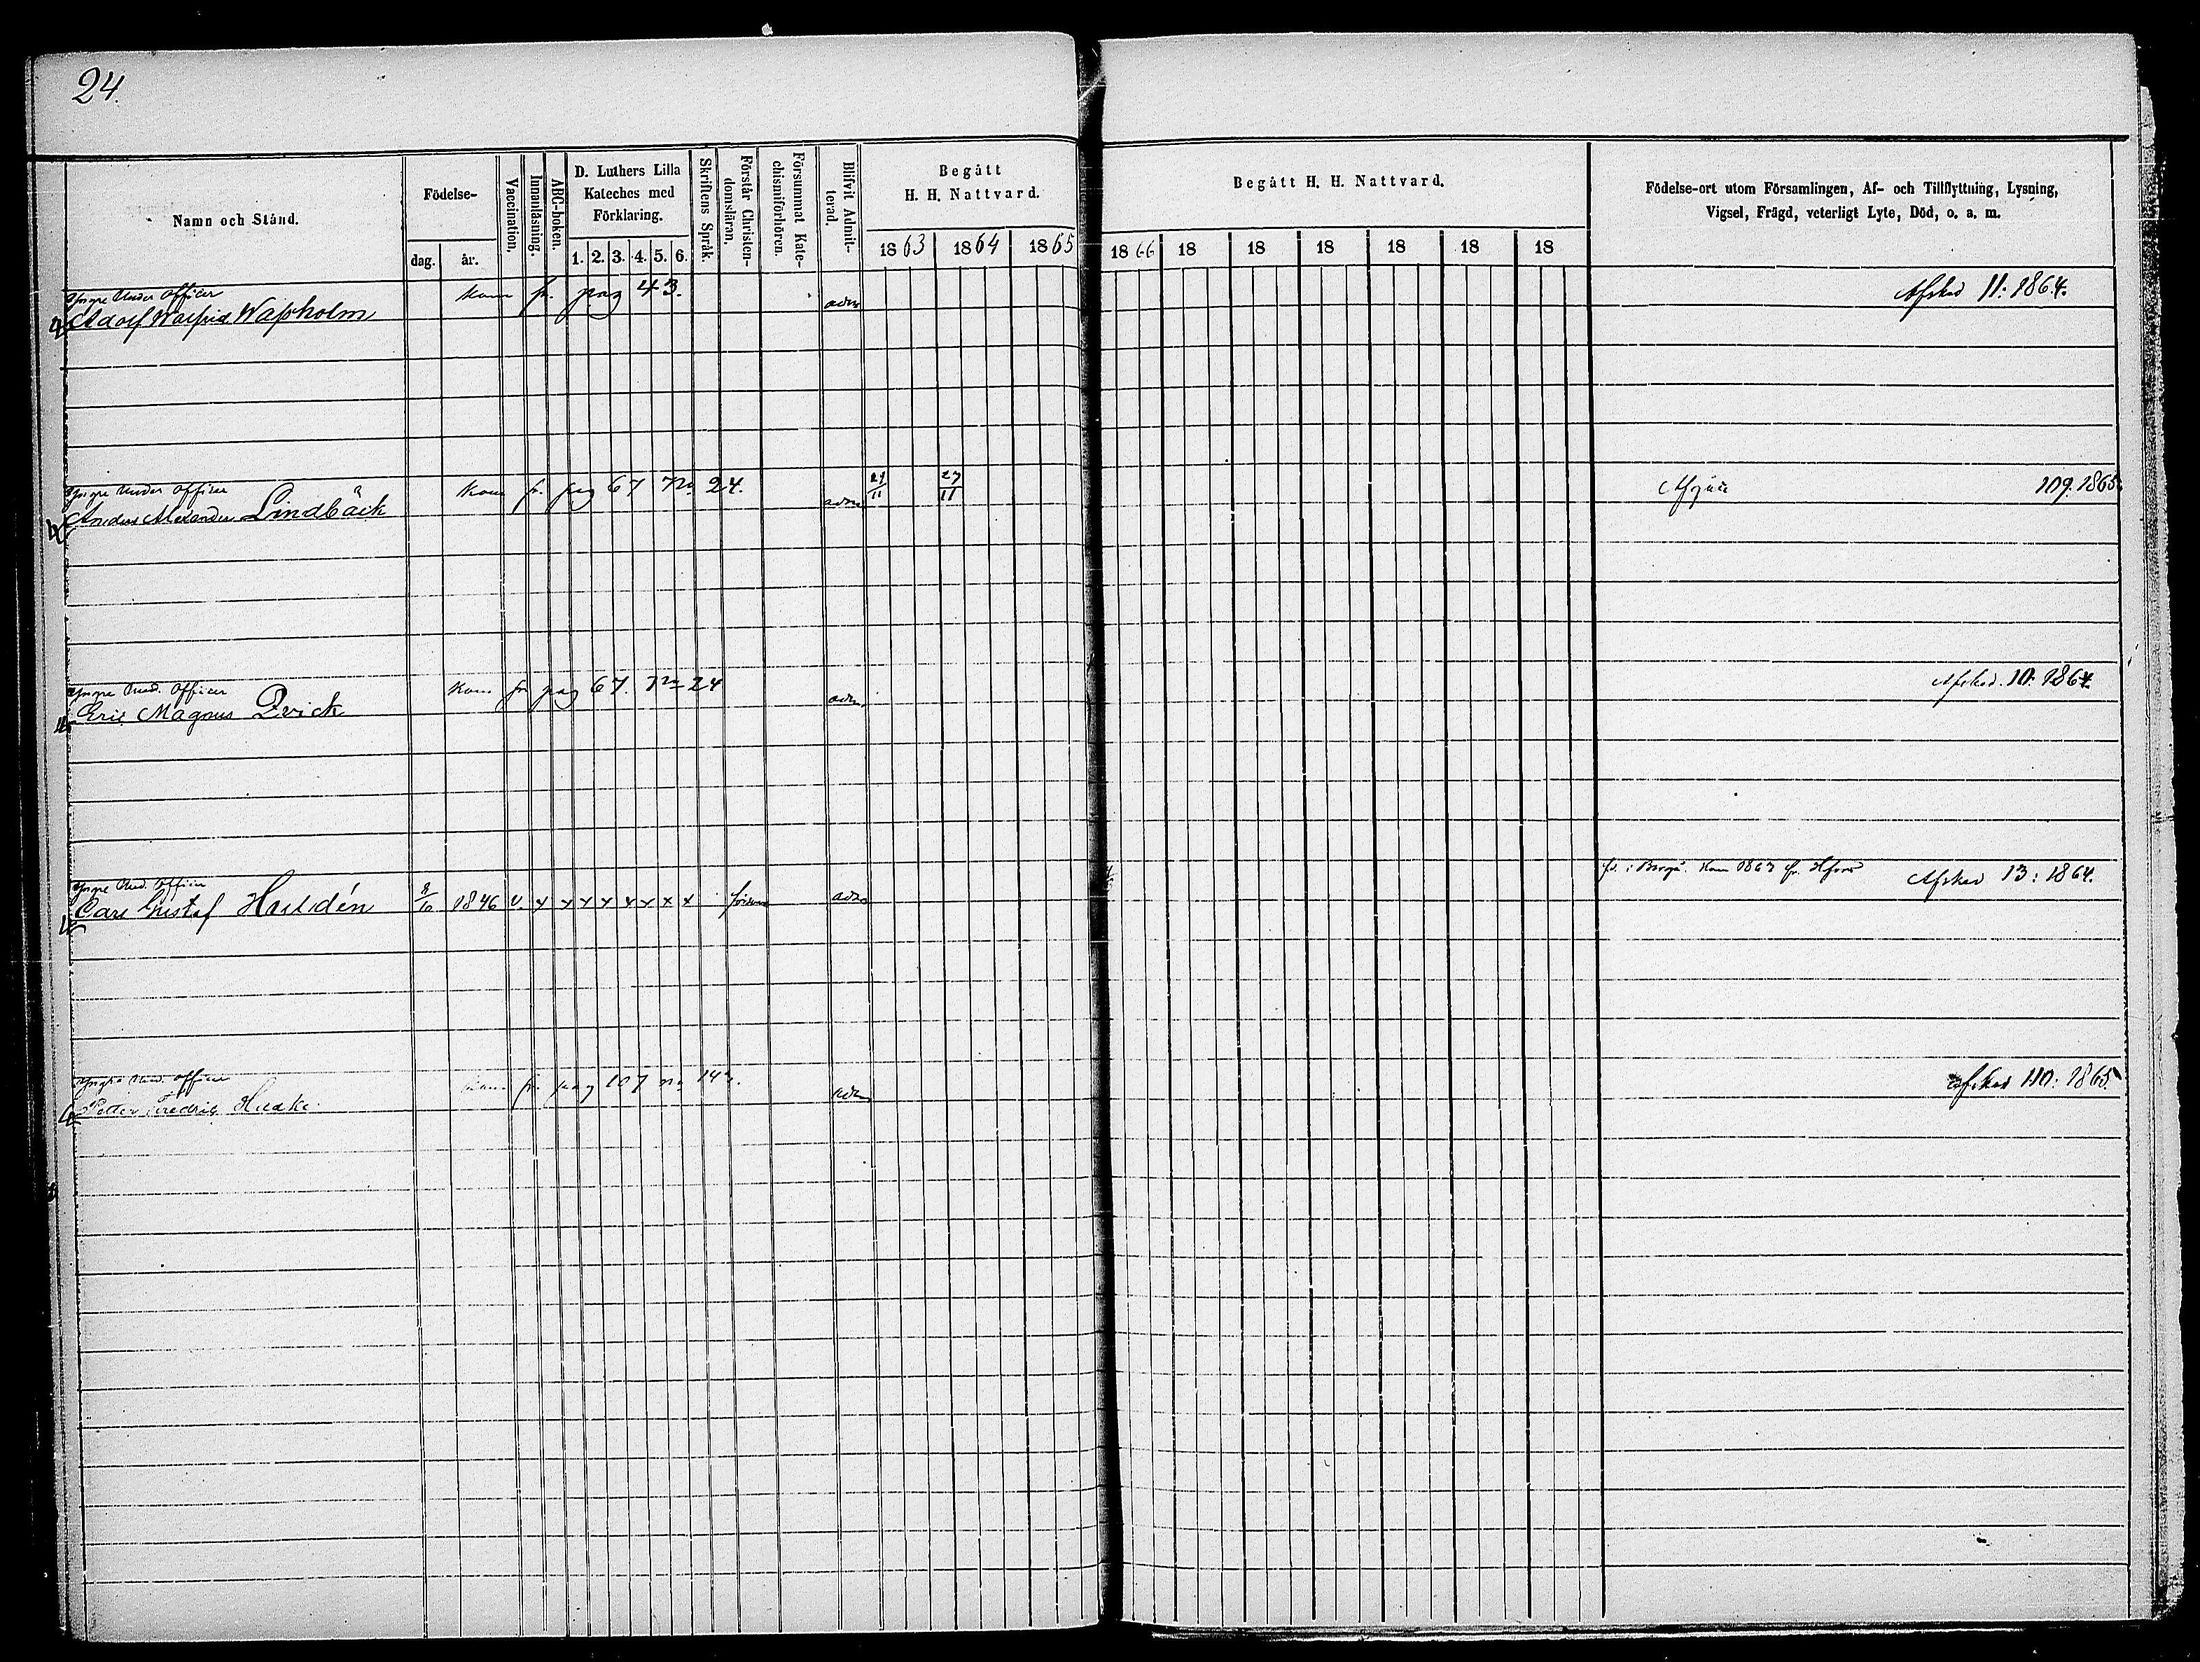 24.
Namn och Stånd.
Födelse-
dag.
år.
Vaccination.
Innanläsning.
ABC-boken.
D. Luthers Lilla
Kateches med
Förklaring.
1. 2. 3. 4. 5. 6.
Skriftens Språk.
Förstår Christen-
domsläran.
Försummat Kate-
chismiförhören.
Blifvit Admit-
terad.
Begått
H. H. Nattvard.
1863 1864 1865
Begått H. H. Nattvard.
1866 18 18 18 18 18 18
Födelse-ort utom Församlingen, Af- och Tillflyttning, Lysning,
Vigsel, Frägd, veterligt Lyte, Död, o. a. m.
Yngre Under Officer
Adolf Walfrid
kom fr. pag 43. adm Afsked 11: 1864.
Yngre Under Officer
Anders Alexander Lindbäck
kom fr. pag 67 No 24. adm 27/11 109. 1865
Yngre Und. Officer
Eric Magnus Qvick
kom fr pag 67. No 24 adm Afsked. 10. 1864.
Yngre Und. Officer
Carl Gustaf Huldén
8/10 1846 v. x x x x x x x x adm
fd. i Borgå. Kom 1863 fr. Hfors Afsked 13: 1864.
Yngre Und. Officer
Petter Fredric
fr. pag 107 no adm Afsked 110: 1865.